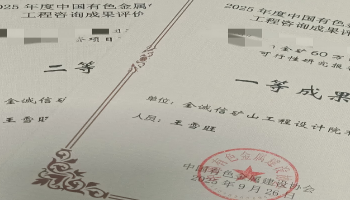 2025年度中国有色金属
工程咨询成果评价
咨项目
二等
金诚信矿
王雪
2025年度中国有色金
工程咨询成果评
金矿60万
可行性研究报
一等成果
单位:金诚信矿山工程设计院
人员:王雪旺
中国有色金属建设协会
2025年9月26日